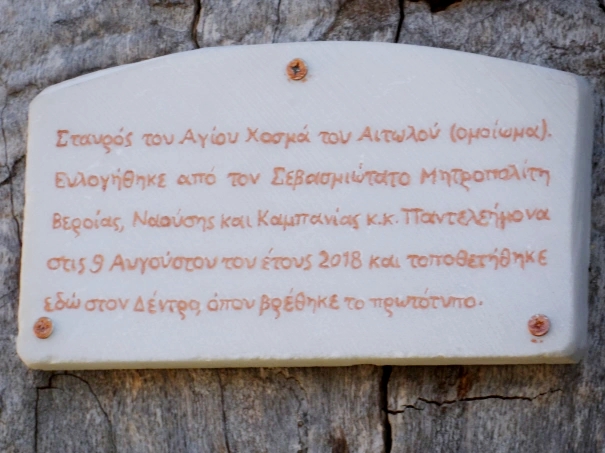 Σταυρός του Αγίου Χοσμά του Αιτωλού (ομοίωμα).
Ευλογήθηκε από τον Σεβασμιώτατο Μητροπολίτη
Βεροίας, Ναούσης και Καμπανίας κ.κ. Παντελεήμονα
στις 9 Αυγούστου του έτους 2018 και τοποθετήθηκε
εδώ στον Δέντρο, όπου βρέθηκε το πρωτότυπο.